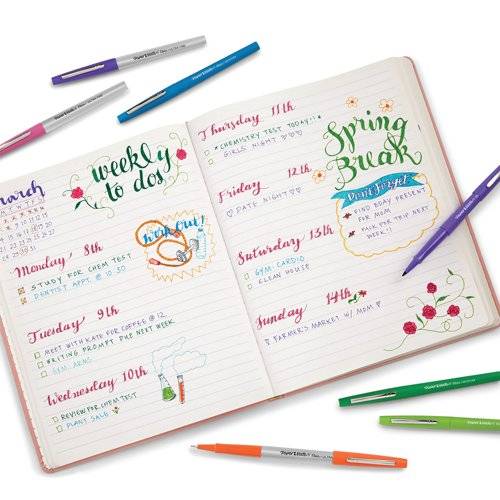 weekly
to dos
March
M T W T F S S
Monday 8th
STUDY FOR CHEM TEST
DENTIST APPT. @ 10:30
Workout!
Tuesday 9th
MEET WITH KATE FOR COFFEE @ 12
WRITING PROMPT DUE NEXT WEEK
GYM: ARMS
Wednesday 10th
REVIEW FOR CHEM TEST
PLANT SALE
Thursday 11th
*CHEMISTRY TEST TODAY!*
GIRLS NIGHT ♡♡♡
Friday 12th
♡ DATE NIGHT ♡♡
Saturday 13th
GYM: CARDIO
CLEAN HOUSE
Sunday 14th
FARMER'S MARKET W/ MOM ♡
Spring
Break
Don't Forget
FIND BDAY PRESENT
FOR MOM
PACK FOR TRIP NEXT
WEEK!!
Paper Mate Flair
Paper Mate Flair
Paper Mate Flair
Paper Mate Flair
Paper Mate Flair
Paper Mate Flair